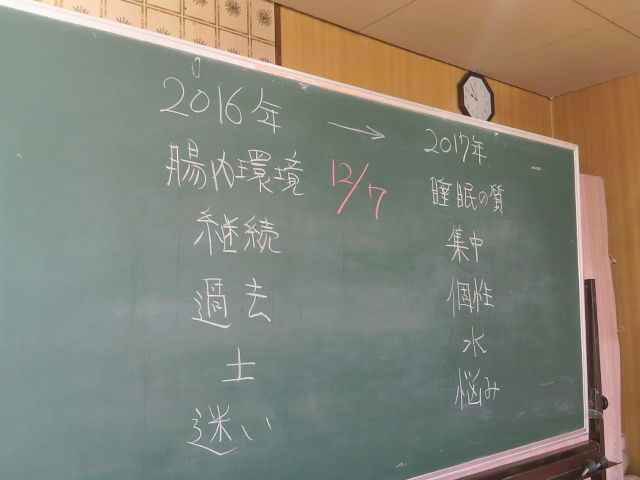 2016年 → 2017年
腸内環境 12/7 睡眠の質
継続 集中
過去 個性
土 水
迷い 悩み